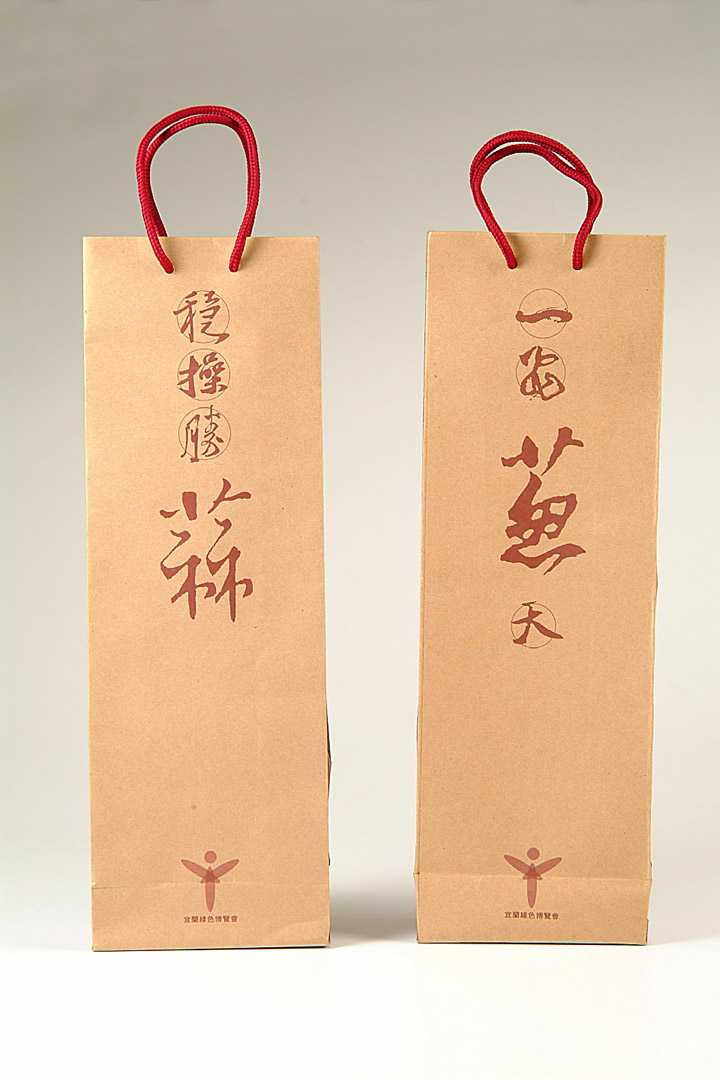 穩操勝蒜
宜蘭綠色博覽會
一飛蔥天
宜蘭綠色博覽會